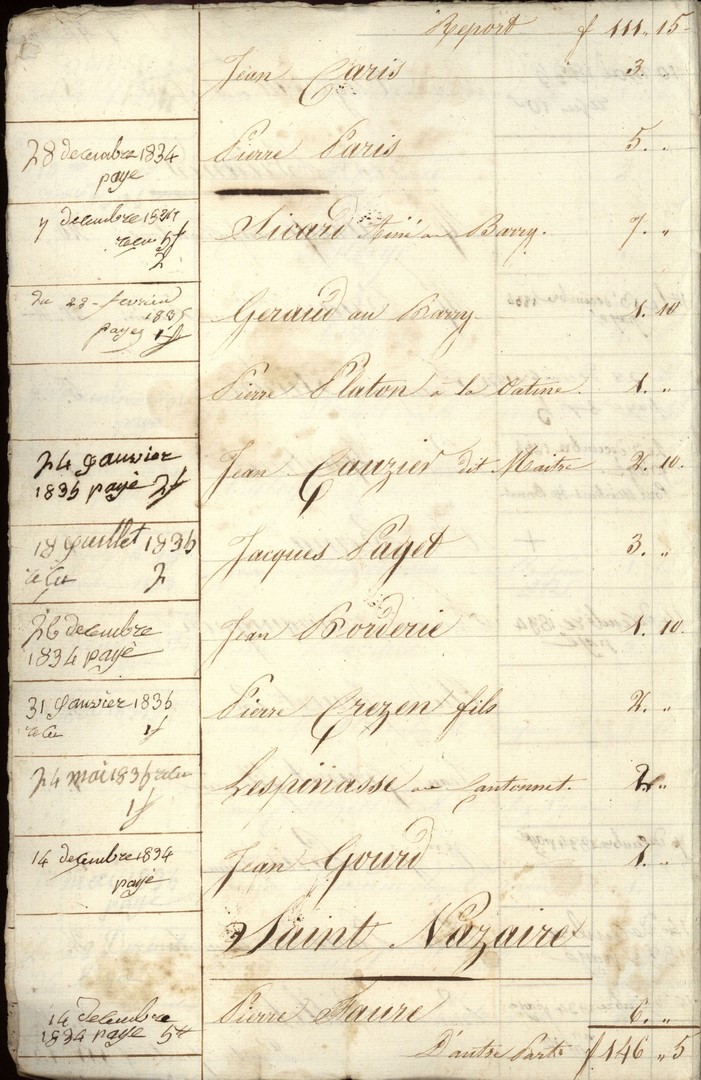 Report f 111 " 15
Jean Paris 3.
28 decembre 1834
payé
Pierre Paris 5. "
7 decembre 1834
recu 5 f
2
Sicard ainé au Barry. 7. "
du 28 fevrier
1835
payes 1 f
Geraud au Barry 1. 10
Pierre Platon à la Vatine. 1. "
24 janvier
1835 payé 2 f
Jean Cauzier dit Maitre 2. 10.
18 juillet 1835
recu 2
Jacques Paget 3. "
26 decembre
1834 payé
Jean Borderie 1. 10.
31 janvier 1835
recu 1 f
Pierre Crezen fils 2. "
24 mai 1835 recu
1 f
Lespinasse au Cantonnet. 2. "
14 decembre 1834
payé
Jean Gourd 1. "
Saint Nazaire
14 decembre
1834 payé 5 tt
Pierre Faure 6. "
D'autre Part f 146 " 5